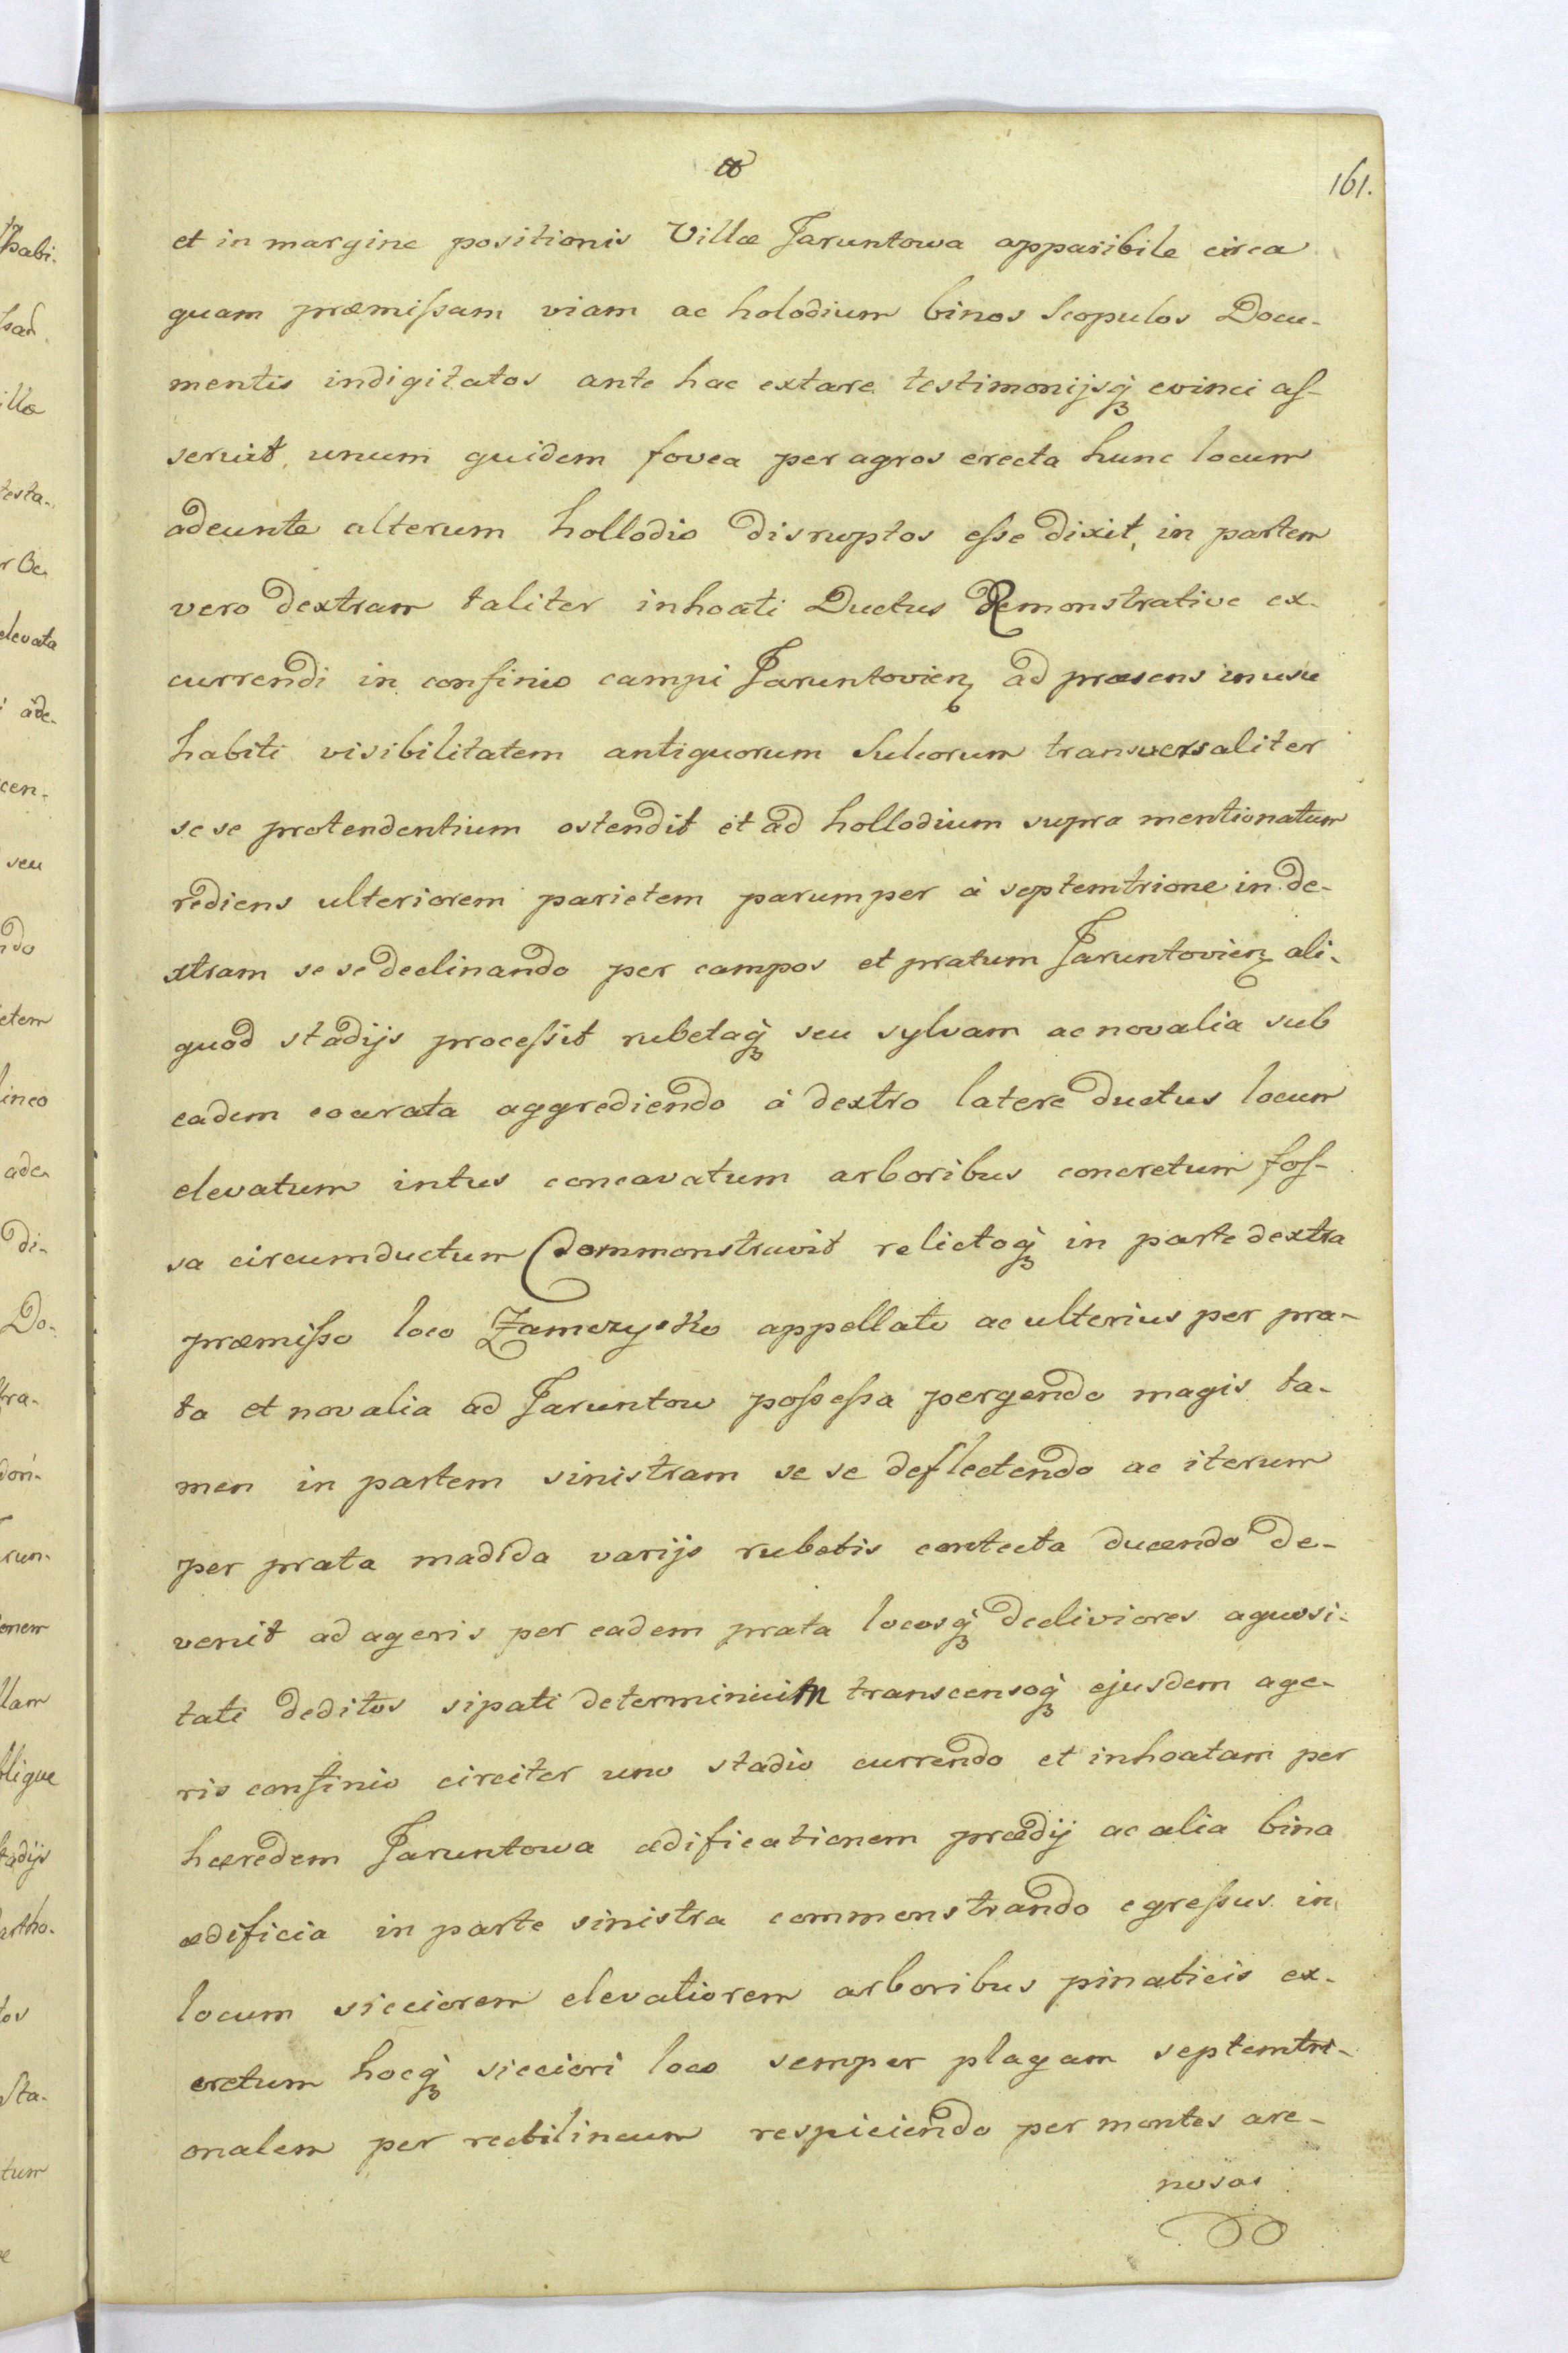 161.
et in margine positionis Villæ Jaruntowa apparibile circa
quam præmissam viam ac holodium binos Scopulos Docu-
mentis indigitatos ante hac extare testimonijsq₃ evinci as-
seruit, unum quidem fovea per agros erecta hunc locum
adeunte alterum hollodio disruptos esse dixit, in partem
vero dextram taliter inhoati Ductus Remonstrative ex-
currendi in confinio campi Jaruntovien₃ ad præsens in usu
habiti visibilitatem antiquorum Sulcorum transversaliter
se se protendentium ostendit et ad hollodium supra mentionatum
rediens ulteriorem parietem parumper à septemtrione in de-
xtram se se declinando per campos et pratum Jaruntovien₃ ali-
quod stadijs processit rubetaq₃ seu sylvam ac novalia sub
eadem exarata aggrediendo à dextro latere ductus locum
elevatum intus concavatum arboribus concretum fos-
sa circumductum Commonstravit relictoq₃ in parte dextra
præmisso loco Zamczysko appellato ac ulterius per pra-
ta et novalia ad Jaruntow possessa pergendo magis ta-
men in partem sinistram se se deflectendo ac iterum
per prata madida varijs rubetis contecta ducendo de-
venit ad ageris per eadem prata locosq₃ decliviores aquosi-
tati deditos sipati determinium transcensoq₃ ejusdem age-
ris confinio circiter uno stadio currendo et inhoatam per
hæredem Jaruntowa ædificationem prædij ac alia bina
ædificia in parte sinistra commonstrando egressus in
locum sicciorem elevatiorem arboribus pinaticis ex-
cretum hocq₃ sicciori loco semper plagam septemtri-
onalem per rectilineum respiciendo per montes are-
nosos